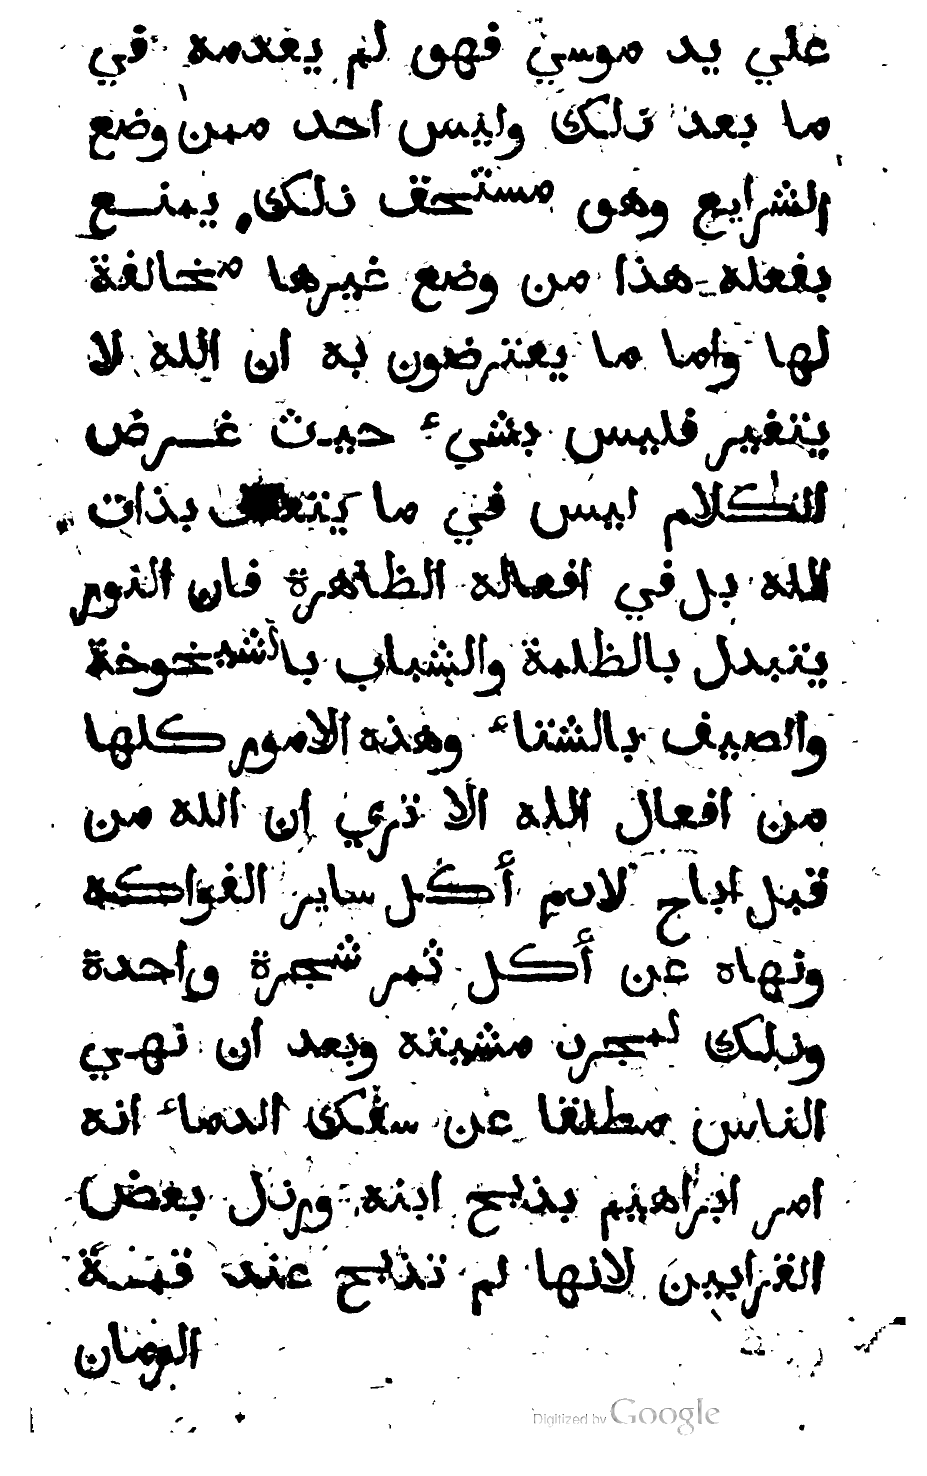 علي يد موسي فهو لم يعدمه في
ما بعد ذلك وليس احد ممن وضع
الشرايع وهو مستحق ذلك يمنع
بفعله هذا من وضع غيرها مخالفة
لها واما ما يعترضون به ان الله لا
يتغير فليس بشيء حيث غرض
الكلام ليس في ما بذات
الله بل في افعاله الظاهرة فان النور
يتبدل بالظلمة والشباب بالشيخوخة
والصيف بالشتاء وهذه الامور كلها
من افعال الله الا تري ان الله من
قبل اباح لادم أكل ساير الفواكه
ونهاه عن أكل ثمر شجرة واحدة
وذلك لمجرد مشيته وبعد ان نهي
الناس مطلقا عن سفك الدماء انه
امر ابراهيم بذبح ابنه ورذل بعض
القرابين لانها لم تذبح عند قبة
الزمان
Digitized by Google